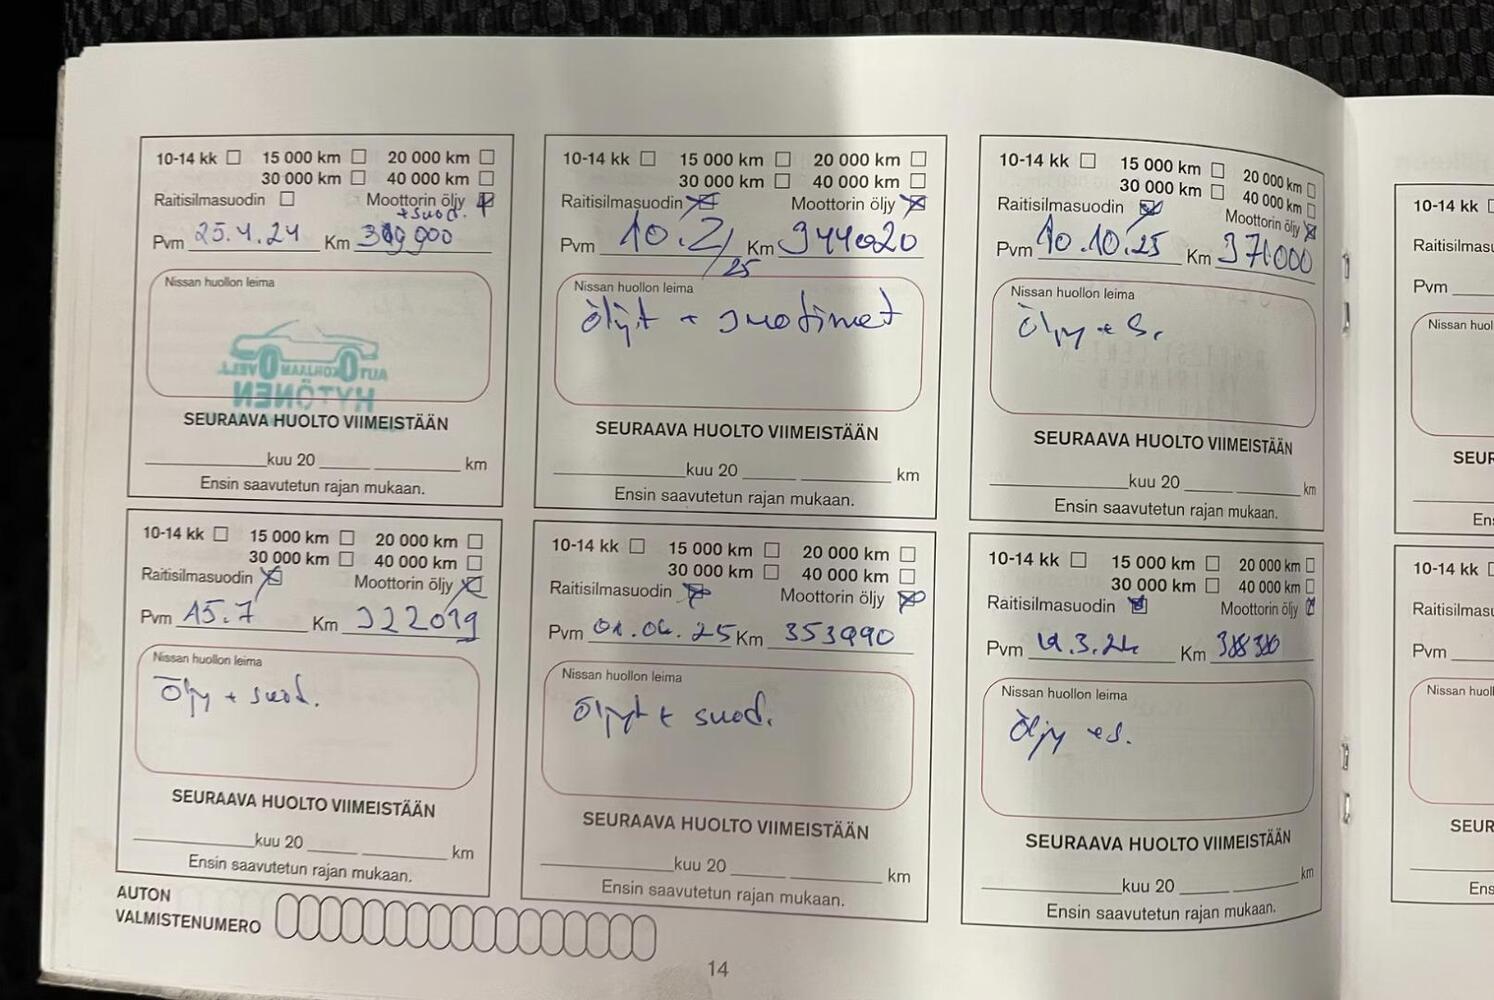 10-14 kk 15 000 km 20 000 km
30 000 km 40 000 km
Raitisilmasuodin Moottorin öljy
+ suod.
Pvm 25.4.24 Km
Nissan huollon leima
HYTÖNEN
SEURAAVA HUOLTO VIIMEISTÄÄN
kuu 20 km
Ensin saavutetun rajan mukaan.
10-14 kk 15 000 km 20 000 km
30 000 km 40 000 km
Raitisilmasuodin Moottorin öljy
Pvm 10.2/25 Km 344020
Nissan huollon leima
öljyt + suotimet
SEURAAVA HUOLTO VIIMEISTÄÄN
kuu 20 km
Ensin saavutetun rajan mukaan.
10-14 kk 15 000 km 20 000 km
30 000 km 40 000 km
Raitisilmasuodin Moottorin öljy
Pvm 10.10.25 Km 371000
Nissan huollon leima
öljy + s.
SEURAAVA HUOLTO VIIMEISTÄÄN
kuu 20 km
Ensin saavutetun rajan mukaan.
10-14 kk 15 000 km 20 000 km
30 000 km 40 000 km
Raitisilmasuodin Moottorin öljy
Pvm 15.7 Km 322019
Nissan huollon leima
Öljy + suod.
SEURAAVA HUOLTO VIIMEISTÄÄN
kuu 20 km
Ensin saavutetun rajan mukaan.
10-14 kk 15 000 km 20 000 km
30 000 km 40 000 km
Raitisilmasuodin Moottorin öljy
Pvm Km 353990
Nissan huollon leima
Öljyt + suod.
SEURAAVA HUOLTO VIIMEISTÄÄN
kuu 20 km
Ensin saavutetun rajan mukaan.
10-14 kk 15 000 km 20 000 km
30 000 km 40 000 km
Raitisilmasuodin Moottorin öljy
Pvm Km
Nissan huollon leima
Öljy + s.
SEURAAVA HUOLTO VIIMEISTÄÄN
kuu 20 km
Ensin saavutetun rajan mukaan.
AUTON
VALMISTENUMERO
14
10-14 kk
Pvm
10-14 kk
Pvm